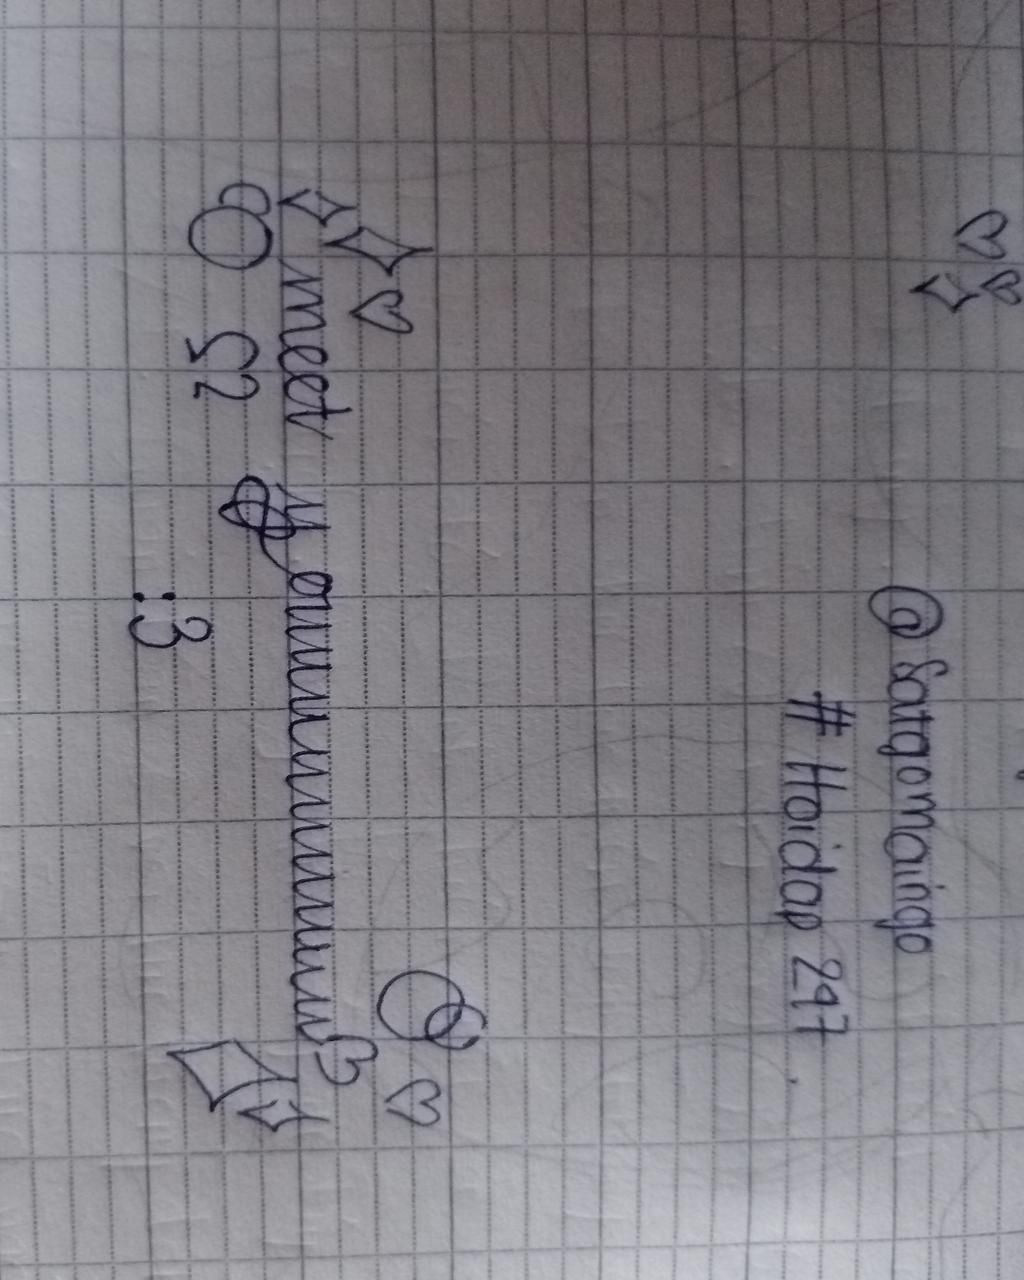 @satgomaingo
# Hoidap 247
meet youuuuuuuuuu
:3